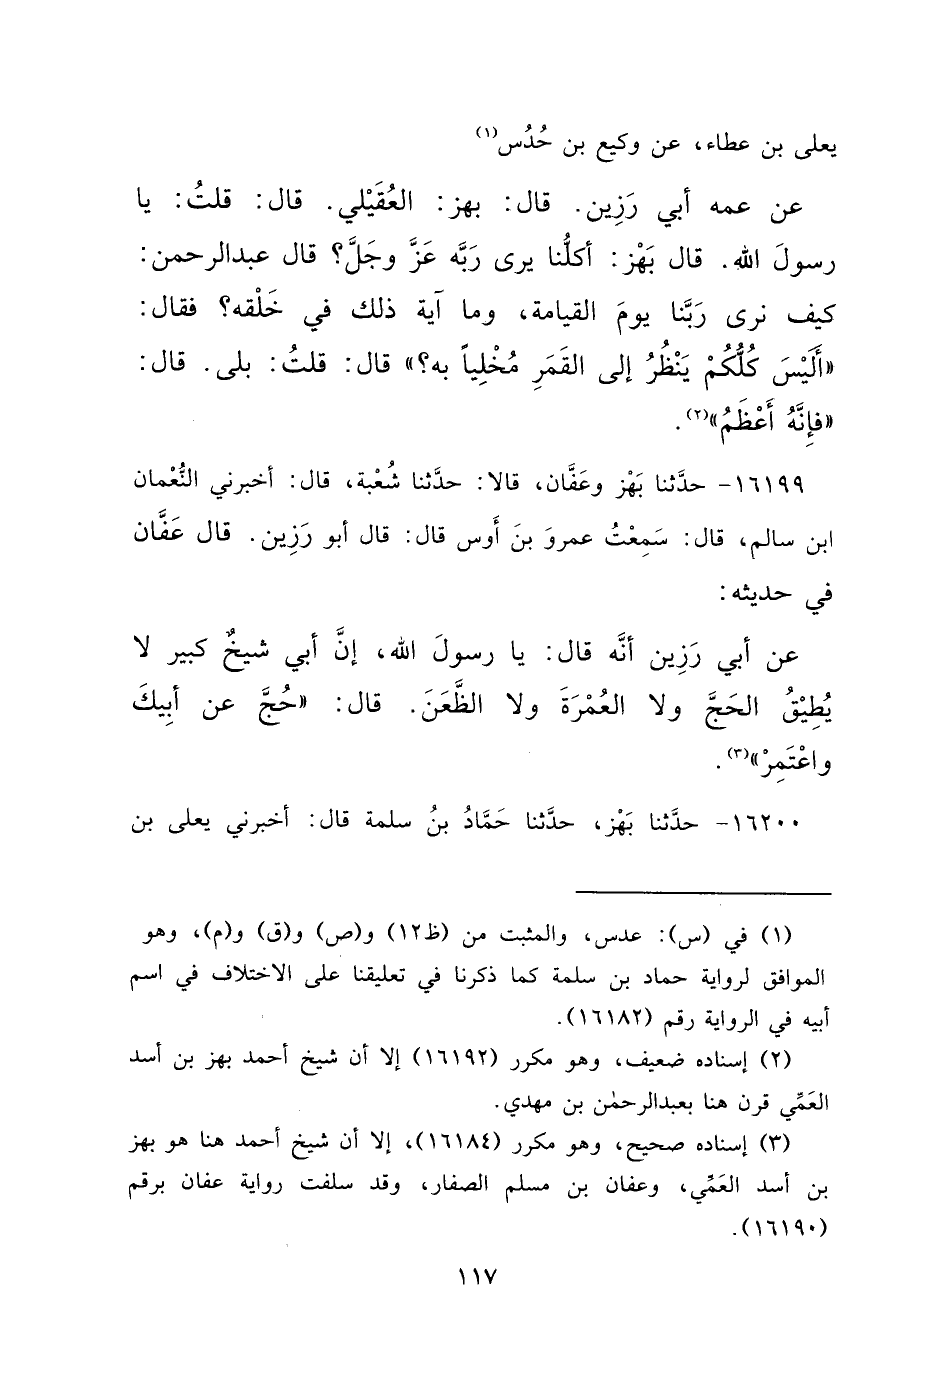 يعلى بن عطاء، عن وكيع بن حُدُس(١)
عن عمه أبي رَزِين. قال: بهز: العُقَيْلي. قال: قلتُ: يا
رسولَ الله. قال بَهْز: أكلُّنا يرى رَبَّه عَزَّ وجَلَّ؟ قال عبدالرحمن:
كيف نرى رَبَّنا يومَ القيامة، وما آية ذلك في خَلْقه؟ فقال:
«أَلَيْسَ كُلُّكُمْ يَنْظُرُ إلى القَمَرِ مُخْلِياً به؟» قال: قلتُ: بلى. قال:
«فإنَّهُ أَعْظَمُ»(٢).
١٦١٩٩- حدَّثنا بَهْز وعَفَّان، قالا: حدَّثنا شُعْبة، قال: أخبرني النُّعْمان
ابن سالم، قال: سَمِعْتُ عمروَ بنَ أَوس قال: قال أبو رَزِين. قال عَفَّان
في حديثه:
عن أبي رَزِين أنَّه قال: يا رسولَ الله، إنَّ أبي شيخٌ كبير لا
يُطِيْقُ الحَجَّ ولا العُمْرَةَ ولا الظَّعَنَ. قال: «حُجَّ عن أبِيكَ
واعْتَمِرْ»(٣).
١٦٢٠٠- حدَّثنا بَهْز، حدَّثنا حَمَّادُ بنُ سلمة قال: أخبرني يعلى بن
(١) في (س): عدس، والمثبت من (ظ١٢) و(ص) و(ق) و(م)، وهو
الموافق لرواية حماد بن سلمة كما ذكرنا في تعليقنا على الاختلاف في اسم
أبيه في الرواية رقم (١٦١٨٢).
(٢) إسناده ضعيف، وهو مكرر (١٦١٩٢) إلا أن شيخ أحمد بهز بن أسد
العَمِّي قرن هنا بعبدالرحمٰن بن مهدي.
(٣) إسناده صحيح، وهو مكرر (١٦١٨٤)، إلا أن شيخ أحمد هنا هو بهز
بن أسد العَمِّي، وعفان بن مسلم الصفار، وقد سلفت رواية عفان برقم
(١٦١٩٠).
١١٧